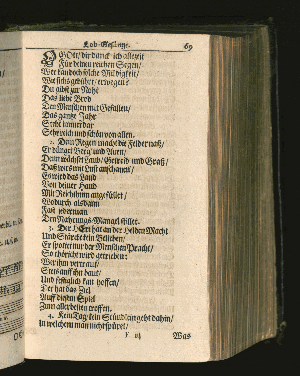 Lob-Gesänge. 69
O GOtt/ dir danck ich allezeit
Für deinen reichen Segen/
Wer kan doch solche Mildigkeit/
Wie sichs gebühret/ erwegen?
Du gibst zur Noht
Das liebe Brod
Den Menschen mit Gefallen/
Das gantze Jahr
Steht immerdar
Sehr reich und schön vor allen.
2. Dein Regen macht die Felder naß/
Er dünget Berg und Auen/
Dem wächset Laub/ Getreid und Graß/
Daß wirs mit Lust anschauen/
Es wird das Land
Von deiner Hand
Mit Reichthum angefüllet/
Wodurch alsdann
Fast jederman
Den Nahrungs-Mangel stillet.
3. Der HErr hat an der Helden Macht
Und Stärcke kein Belieben/
Er spottet nur der Menschen Pracht/
So thöricht wird getrieben:
Wer ihm vertraut/
Stets auff ihn baut/
Und festiglich kan hoffen/
Der hat das Ziel
Auff diesem Spiel
Zum allerbesten troffen.
4. Kein Tag/ kein Stünd/ein geht dahin/
In welchem man nicht spüret/
Was